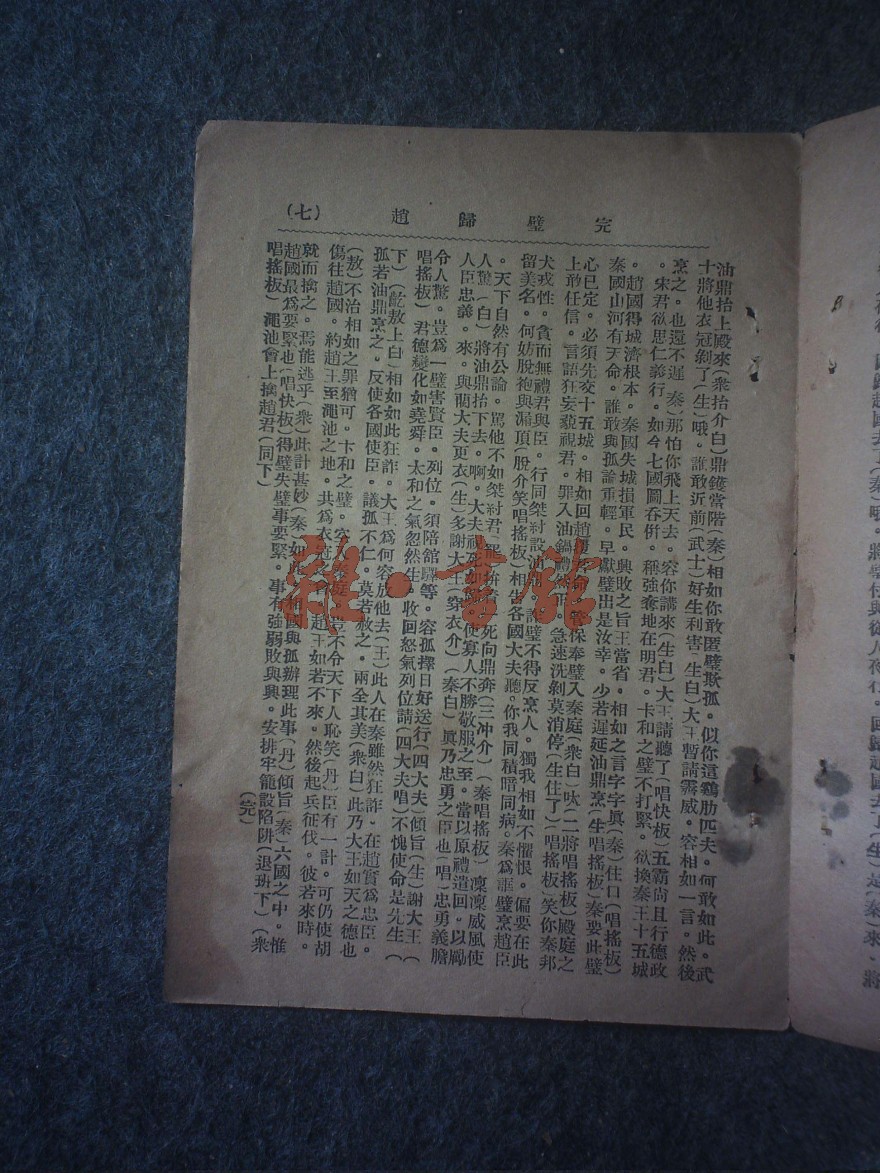 完璧歸趙
(七)
油鼎抬上殿來(衆抬介白)鼎鑊當階(秦)相如你敢匿璧欺孤。似你這鷄肋匹夫。何敢如此。武
士將他衣冠剝了(生)哦。誰敢近前(武士)好生利害(生白)大王暫請霽威。容相如一言。然後
烹之。也還不遲(秦)那怕你飛上天去。容你講來(生白)大王請聽了(唱快板)五霸尙且行德政
。宋君欲思仁義行。如今七國圖吞併。稱強奪地在明君。卞和之璧不打緊。欲換秦王十五城
。趙國得城濟根本。秦國失城損軍民。興敗之旨王當省。相如之言字字眞(秦)住口(唱搖板)
秦國山河有天命。誰敢與孤論重輕。早獻璧出是汝幸。少若遲延油鼎烹(生唱搖板)秦要此璧
心已定。必須先交十五城。相如回趙 管保奉璧入秦庭(衆白)呔(二將唱搖板)殿庭之
上敢任信。言語狂妄藐視君。罪入油鍋 急速洗剝莫消停(生住了)(唱搖板)笑你秦邦
犬戎性。貪而無禮君與臣。行同桀紂設油 詐璧不得反烹人。獨我相如不懼恨。偏要在此
留美名。何妨脫袍與漏頂(脫介笑唱搖板)相告各國大夫聽。你我同積暗同病。秦爲誆璧烹趙臣
。天下自然有公論。罵他不如桀紂君 死向鼎奔(三冲介)(秦唱搖板)凜凜威風使
人驚(白)將油鼎抬下去。啊。大夫視死如 使寡人不勝敬服之至。當以原禮遣回。以勵
人臣忠義。來。與藺大夫更衣(生)多謝大王(穿衣介)(秦白)眞乃忠勇之臣也(唱)忠勇義膽
令人驚。豈爲一璧害賢臣。列位。須陪舘驛等。容孤擇日好送行(四大夫)傾旨(生)謝大王(
唱搖板)君德變化如堯舜。太和之氣忽然生。收回怒氣列位請(四大夫唱)不愧使命是先生(
下)(乾敖上白)相如如此狂詐。大王爲何容放他去(王)此人在秦雖然狂詐。在趙實爲忠臣。
孤若油鼎烹之。反使各國使臣。議孤不仁。莫若赦之。兩全其美(衆白)此乃大王如天之德也
(敖)不治相如之罪猶可。卞和之璧。 豈不令天下人恥笑(丹)臣有一計。可仍使胡
傷往趙國。約趙王至澠池之地。共爲衣冠之 趙王如若不來。然後起兵征伐。彼若來時。
就而擒之。焉能逃乎(衆)此計甚妙(秦)如此 相國與孤辦理此事(丹)傾旨(秦)六國之中。惟
趙國最爲要緊也(唱快板)得璧失璧事要緊。事有強弱敗與興。安排牢籠設陷阱(退班下)(衆
唱搖板)澠池會上擒趙君(同下)
(完)
雜·書舘